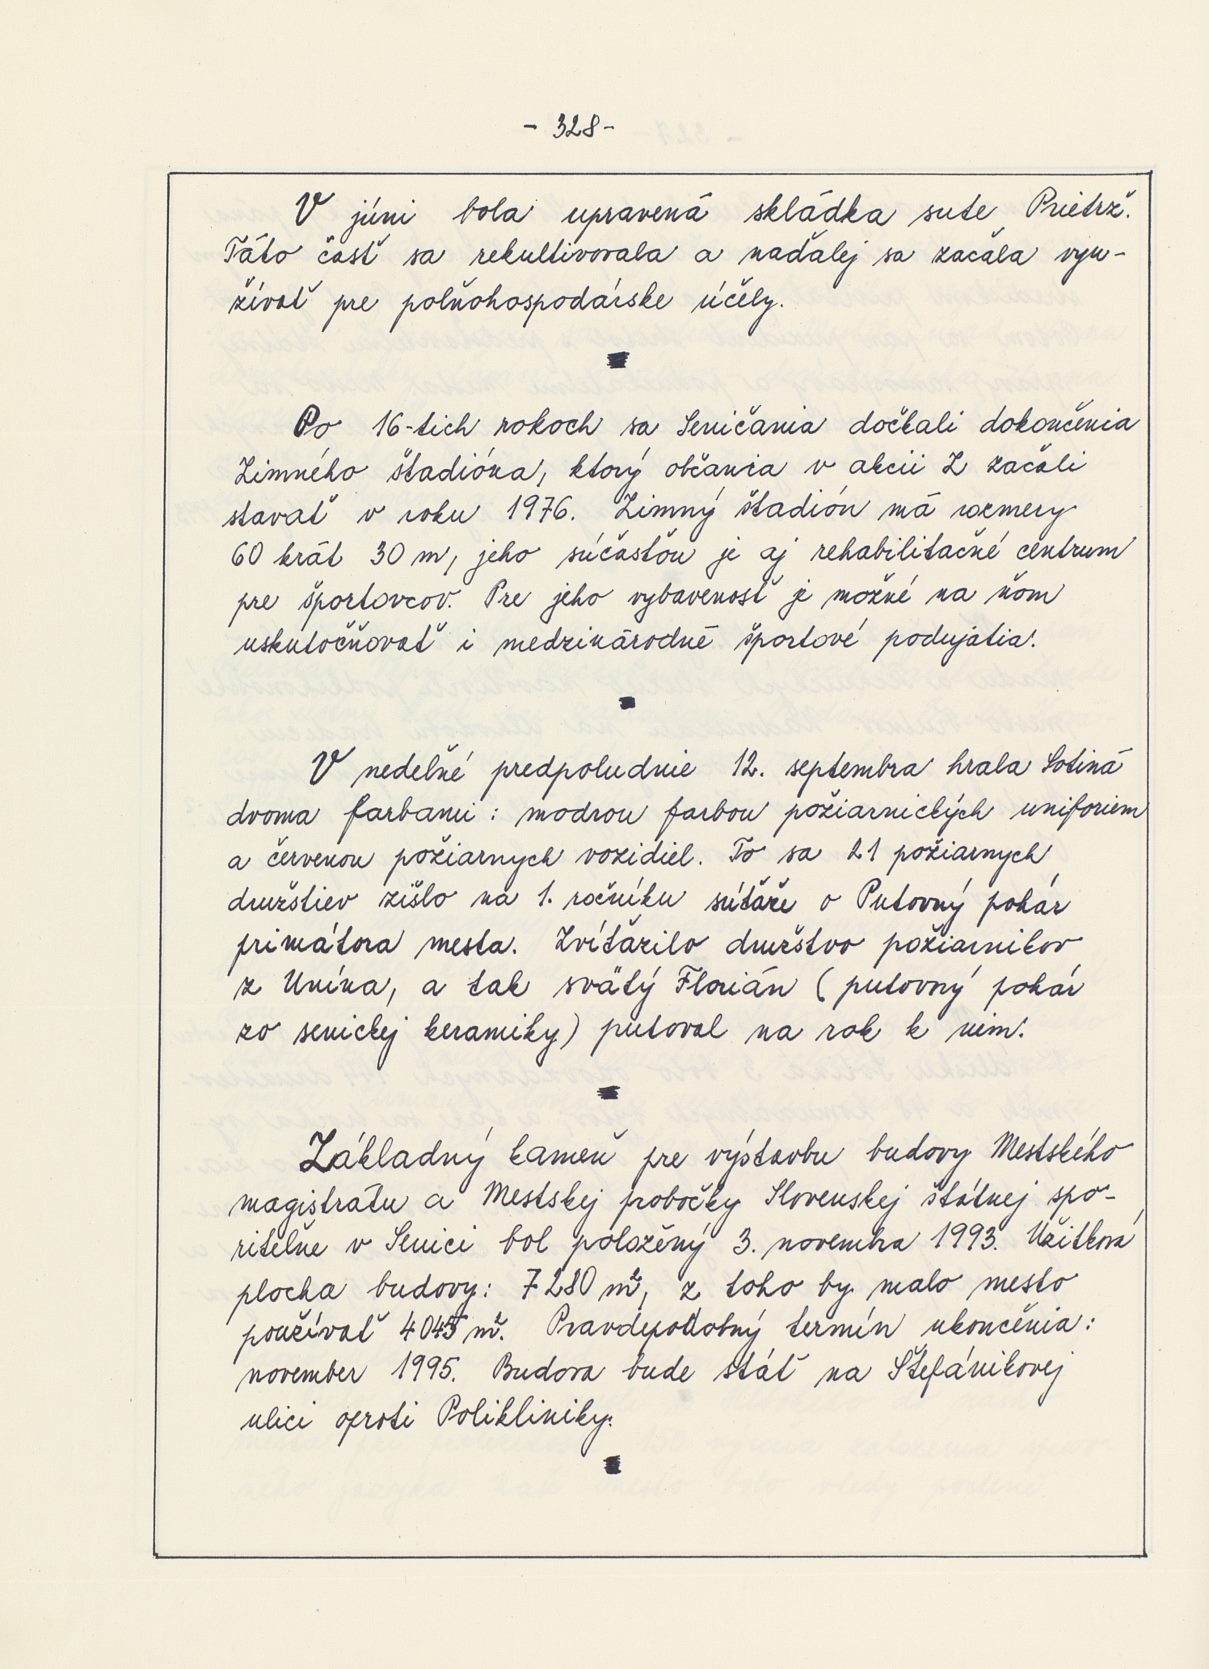 - 328 -
V júni bola upravená skládka sute Prietrž.
Táto časť sa rekultivovala a naďalej sa začala vyu-
žívať pre poľnohospodárske účely.
Po 16-tich rokoch sa Seničania dočkali dokončenia
Zimného štadióna, ktorý občania v akcii Z začali
stavať v roku 1976. Zimný štadión má rozmery
60 krát 30 m, jeho súčasťou je aj rehabilitačné centrum
pre športovcov. Pre jeho vybavenosť je možné na ňom
uskutočňovať i medzinárodné športové podujatia.
V nedeľné predpoludnie 12. septembra hrala Sotina
dvoma farbami: modrou farbou požiarnických uniforiem
a červenou požiarnych vozidiel. To sa 21 požiarnych
družstiev zišlo na 1. ročníku súťaže o Putovný pohár
primátora mesta. Zvíťazilo družstvo požiarnikov
z Unína, a tak svätý Florián (putovný pohár
zo senickej keramiky) putoval na rok k nim.
Základný kameň pre výstavbu budovy Mestského
magistrátu a Mestskej pobočky Slovenskej štátnej spo-
riteľne v Senici bol položený 3. novembra 1993. Úžitková
plocha budovy: 7280 m², z toho by malo mesto
používať 4045 m². Pravdepodobný termín ukončenia:
november 1995. Budova bude stáť na Štefánikovej
ulici oproti Polikliniky.